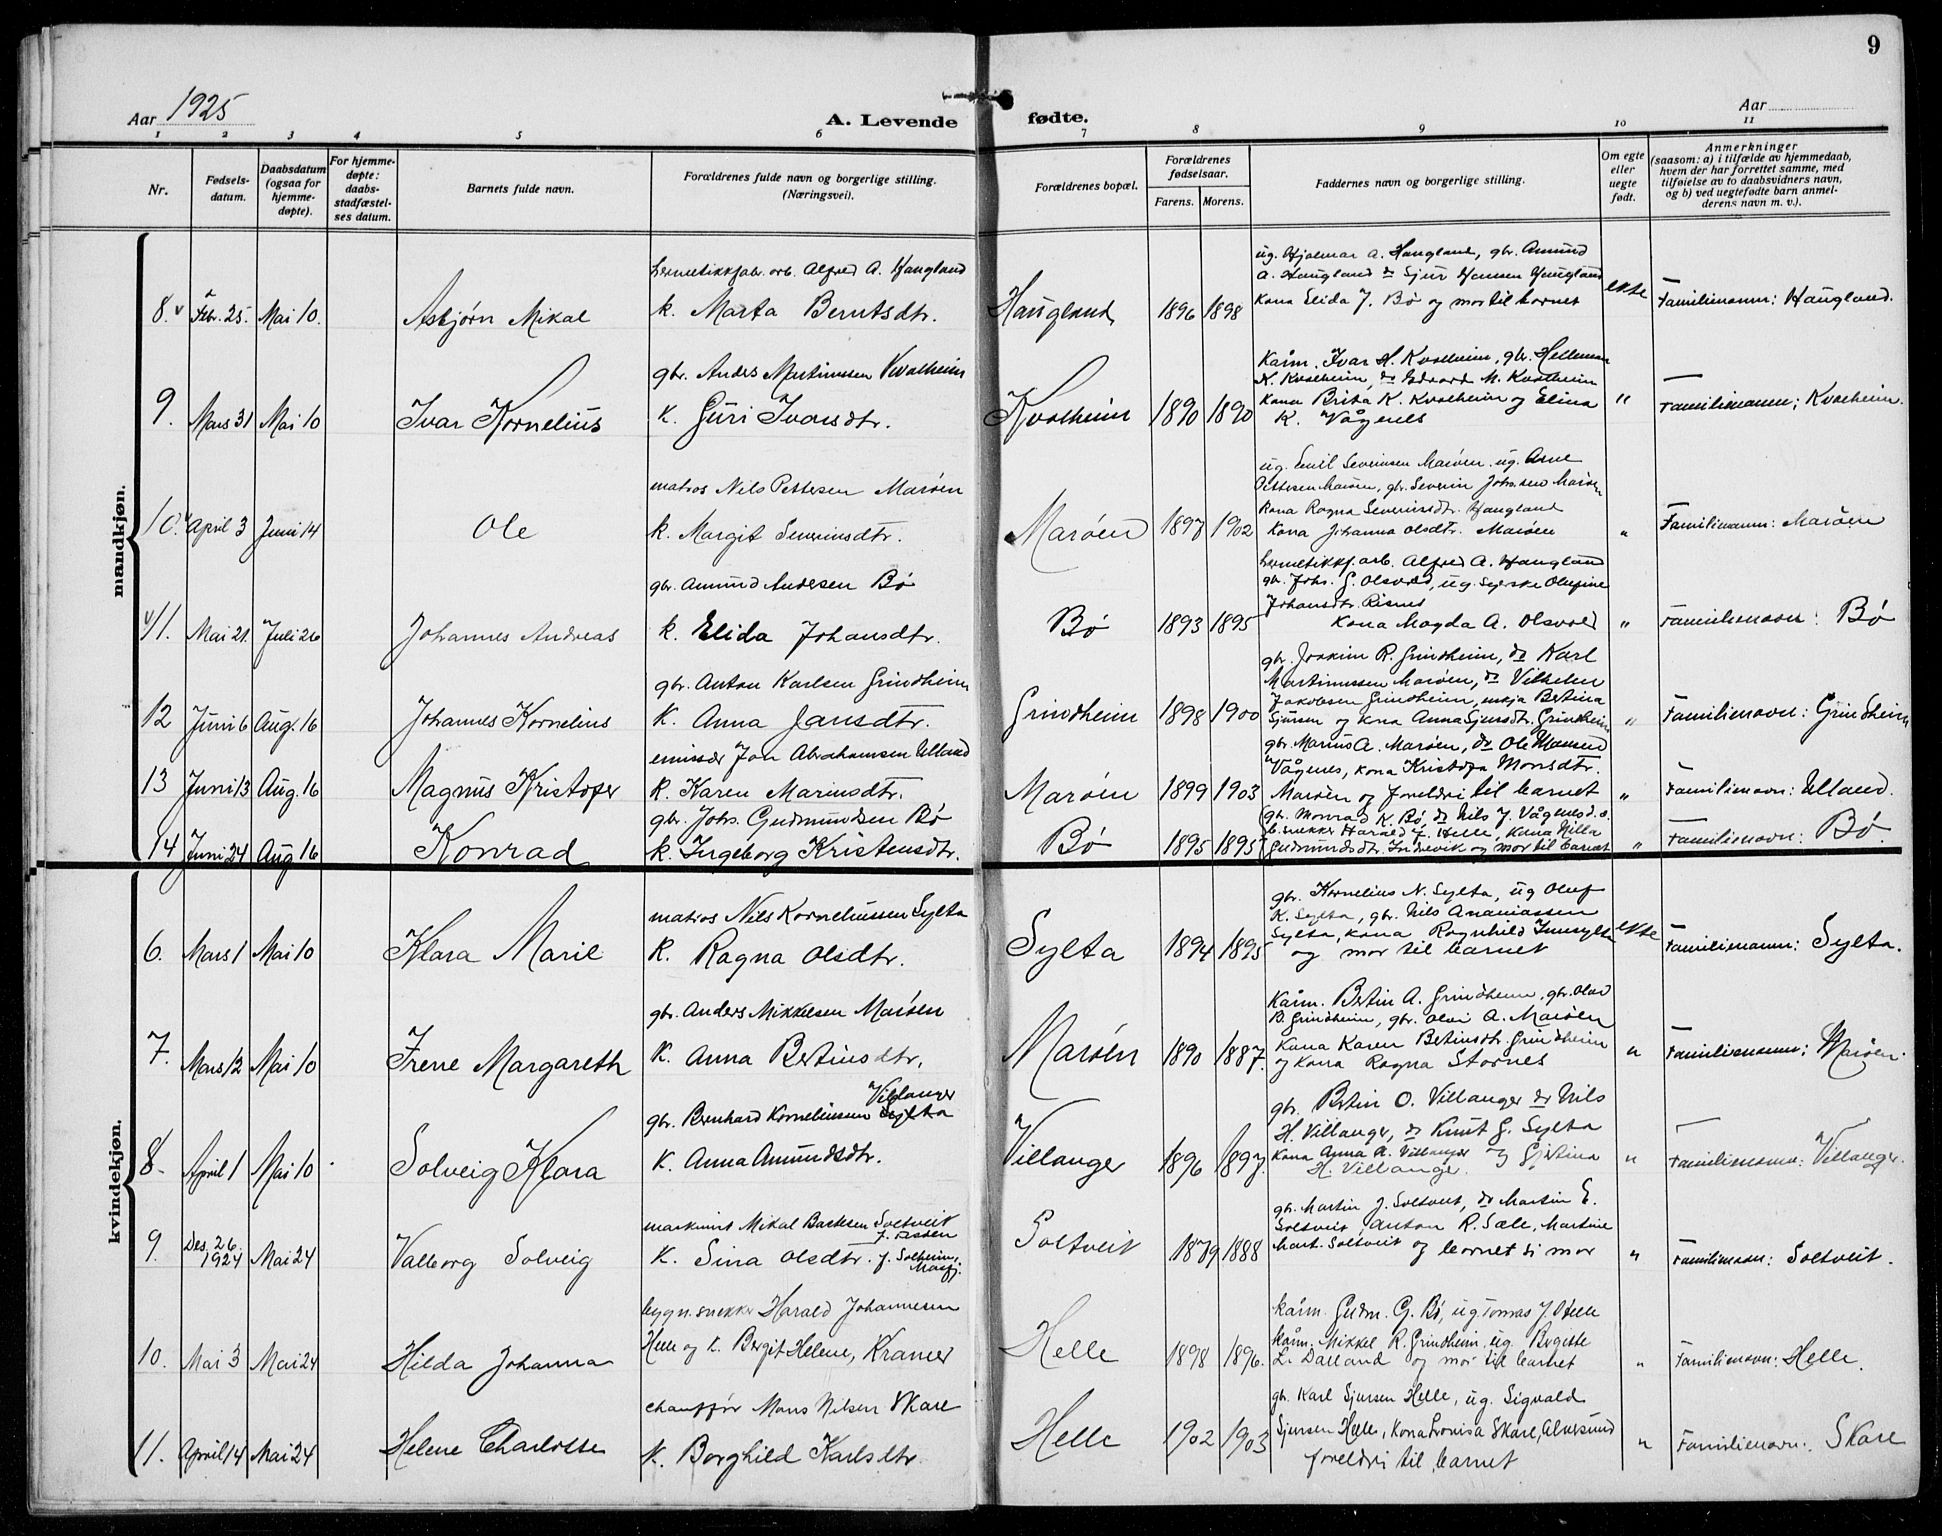 9
Aar 1925
A. Levende
fødte.
Aar
1 2 3 4 5 6 7 8 9 10 11
Nr.
Fødsels-
datum.
Daabsdatum
(ogsaa for
hjemme-
døpte).
For hjemme-
døpte:
daabs-
stadfæstel-
ses datum.
Barnets fulde navn.
Forældrenes fulde navn og borgerlige stilling.
(Næringsvei).
Forældrenes bopæl.
Forældrenes
fødselsaar.
Farens. Morens.
Faddernes navn og borgerlige stilling.
Om egte
eller
uegte
født.
Anmerkninger
(saasom: a) i tilfælde av hjemmedaab,
hvem der har forrettet samme, med
tilføielse av to daabsvidners navn,
og b) ved uegtefødte barn anmel-
derens navn m. v.).
mandkjøn.
hermetikkfabr. arb. Alfred A. Haugland
8. Febr. 25. Mai 10. Asbjørn Mikal k. Marta Berntsdtr.
Haugland 1896 1898
ug. Hjalmar A. Haugland, gbr. Amund
A. Haugland do Sjur Hansen Haugland
kona Elida J. Bø og mor til barnet
ekte
Familienamn: Haugland.
gbr. Anders Martinussen Kvalheim
9. Mars 31 Mai 10 Ivar Kornelius k. Guri Ivarsdtr.
Kvalheim 1890 1890
Kårm. Ivar H. Kvalheim, gbr. Helleman
K. Kvalheim, do Edvard M. Kvalheim
kona Brita K. Kvalheim og Elina
K. Vågenes
"
Familienamn; Kvalheim.
matros Nils Pettersen Marøen
10. April 3 Juni 14 Ole k. Margit Severinsdtr.
Marøen 1897 1902
ug. Emil Severinsen Marøen. ug. Arne
Pettersen Marøen, gbr. Severin Johs.sen Marøen
kona Ragna Severinsdtr. Haugland
Kona Johanna Olsdtr. Marøen
"
Familienamn: Marøen
gbr. Amund Andersen Bø
11. Mai 21. Juli 26 Johannes Andreas k. Elida Johansdtr.
Bø 1893 1895
hermetikkf. arb. Alfred A. Haugland
gbr. Johs. G. Olsvold, ug. syerske Olufine
Johansdtr. Risnes
Kona Magda A. Olsvold
"
Familienavn: Bø
gbr. Anton Karlsen Grindheim
12 Juni 6 Aug. 16 Johannes Kornelius K. Anna Jansdtr.
Grindheim 1898 1900
gbr. Joakim R. Grindheim, do Karl
Martinussen Marøen, do Vilhelm
Jakobsen Grindheim, enkja Bertina
Sjursen og kona Anna Sjursdtr. Grindheim
"
Familienavn: Grindheim
emissær Jon Abrahamsen Ulland
13 Juni 13 Aug. 16 Magnus Kristofer k. Karen Mariusdtr.
Marøen 1899 1903
gbr. Marius A. Marøen, do Ole Monsen
Vågenes, kona Kristofa Monsdtr.
Marøen og foreldri til barnet
"
Familienavn: Ulland.
gbr. Johs. Gudmundsen Bø
14 Juni 24 Aug 16 Konrad k. Ingeborg Kristensdtr.
Bø 1895 1895
gbr. Monrad K. Bø, do Nils J. Vågenes d. s.
b. snekker Harald J. Helle, kona Nilla
Gudmundsdtr. Indrevik og mor til barnet
"
Familienavn: Bø.
kvindekjøn.
matros Nils Korneliussen Sylta
6. Mars 1 Mai 10 Klara Marie K. Ragna Olsdtr.
Sylta 1894 1895
gbr. Kornelius N. Sylta, ug Oluf
K. Sylta, gbr. Nils Ananiassen
Sylta, kona Ragnhild Sylta
og mor til barnet
ekte
Familienamn: Sylta.
gbr. Anders Mikkelsen Marøen
7. Mars 12 Mai 10 Irene Margareth K. Anna Bertinsdtr.
Marøen 1890 1887.
Kårm. Bertin A. Grindheim, gbr. Olav
B. Grindheim, gbr. Olai A. Marøen
Kona Karen Bertinsdtr. Grindheim
og kona Ragna Stornes
"
Familienamn; Marøen.
Villanger
gbr. Bernhard Korneliussen Sylta
8. April 1 Mai 10 Solveig Klara K. Anna Amundsdtr.
Villanger 1896 1897.
gbr. Bertin O. Villanger do Nils
H. Villanger, do Knut G. Sylta
Kona Anna A. Villanger og Gjertina
H. Villanger.
"
Familienamn: Villanger.
maskinist Mikal Bartesen Soltveit
9. Des. 26. 1924 Mai 24 Valborg Solveig K. Sina Olsdtr. f. Solheim, Masfj.
Soltveit 1879 1888
gbr. Martin J. Soltveit, do Martin E.
Soltveit, Anton R. Sæle, Martine
Mart. Soltveit og barnet si mor
"
Familienavn: Soltveit.
bygn. snekker Harald Johannesen
Helle og k. Bergit Helene, Kramer
10. Mai 3 Mai 24 Hilda Johanna
Helle 1898 1896.
Kårm. Gudm. G. Bø, ug Tomas J Helle
kårm. Mikkel R. Grindheim, ug. Birgitte
L. Dalland og mor til barnet
"
Familienavn: Helle.
chauffør Mons Nilsen Skare
11. April 14 Mai 24 Helene Charlotte K. Borghild Karlsdtr.
Helle 1902 1903
gbr. Karl Sjursen Helle, ug. Sigvald
Sjursen Helle, Kona Lovisa Skare, Alversund
foreldri til barnet
"
Familienavn: Skare